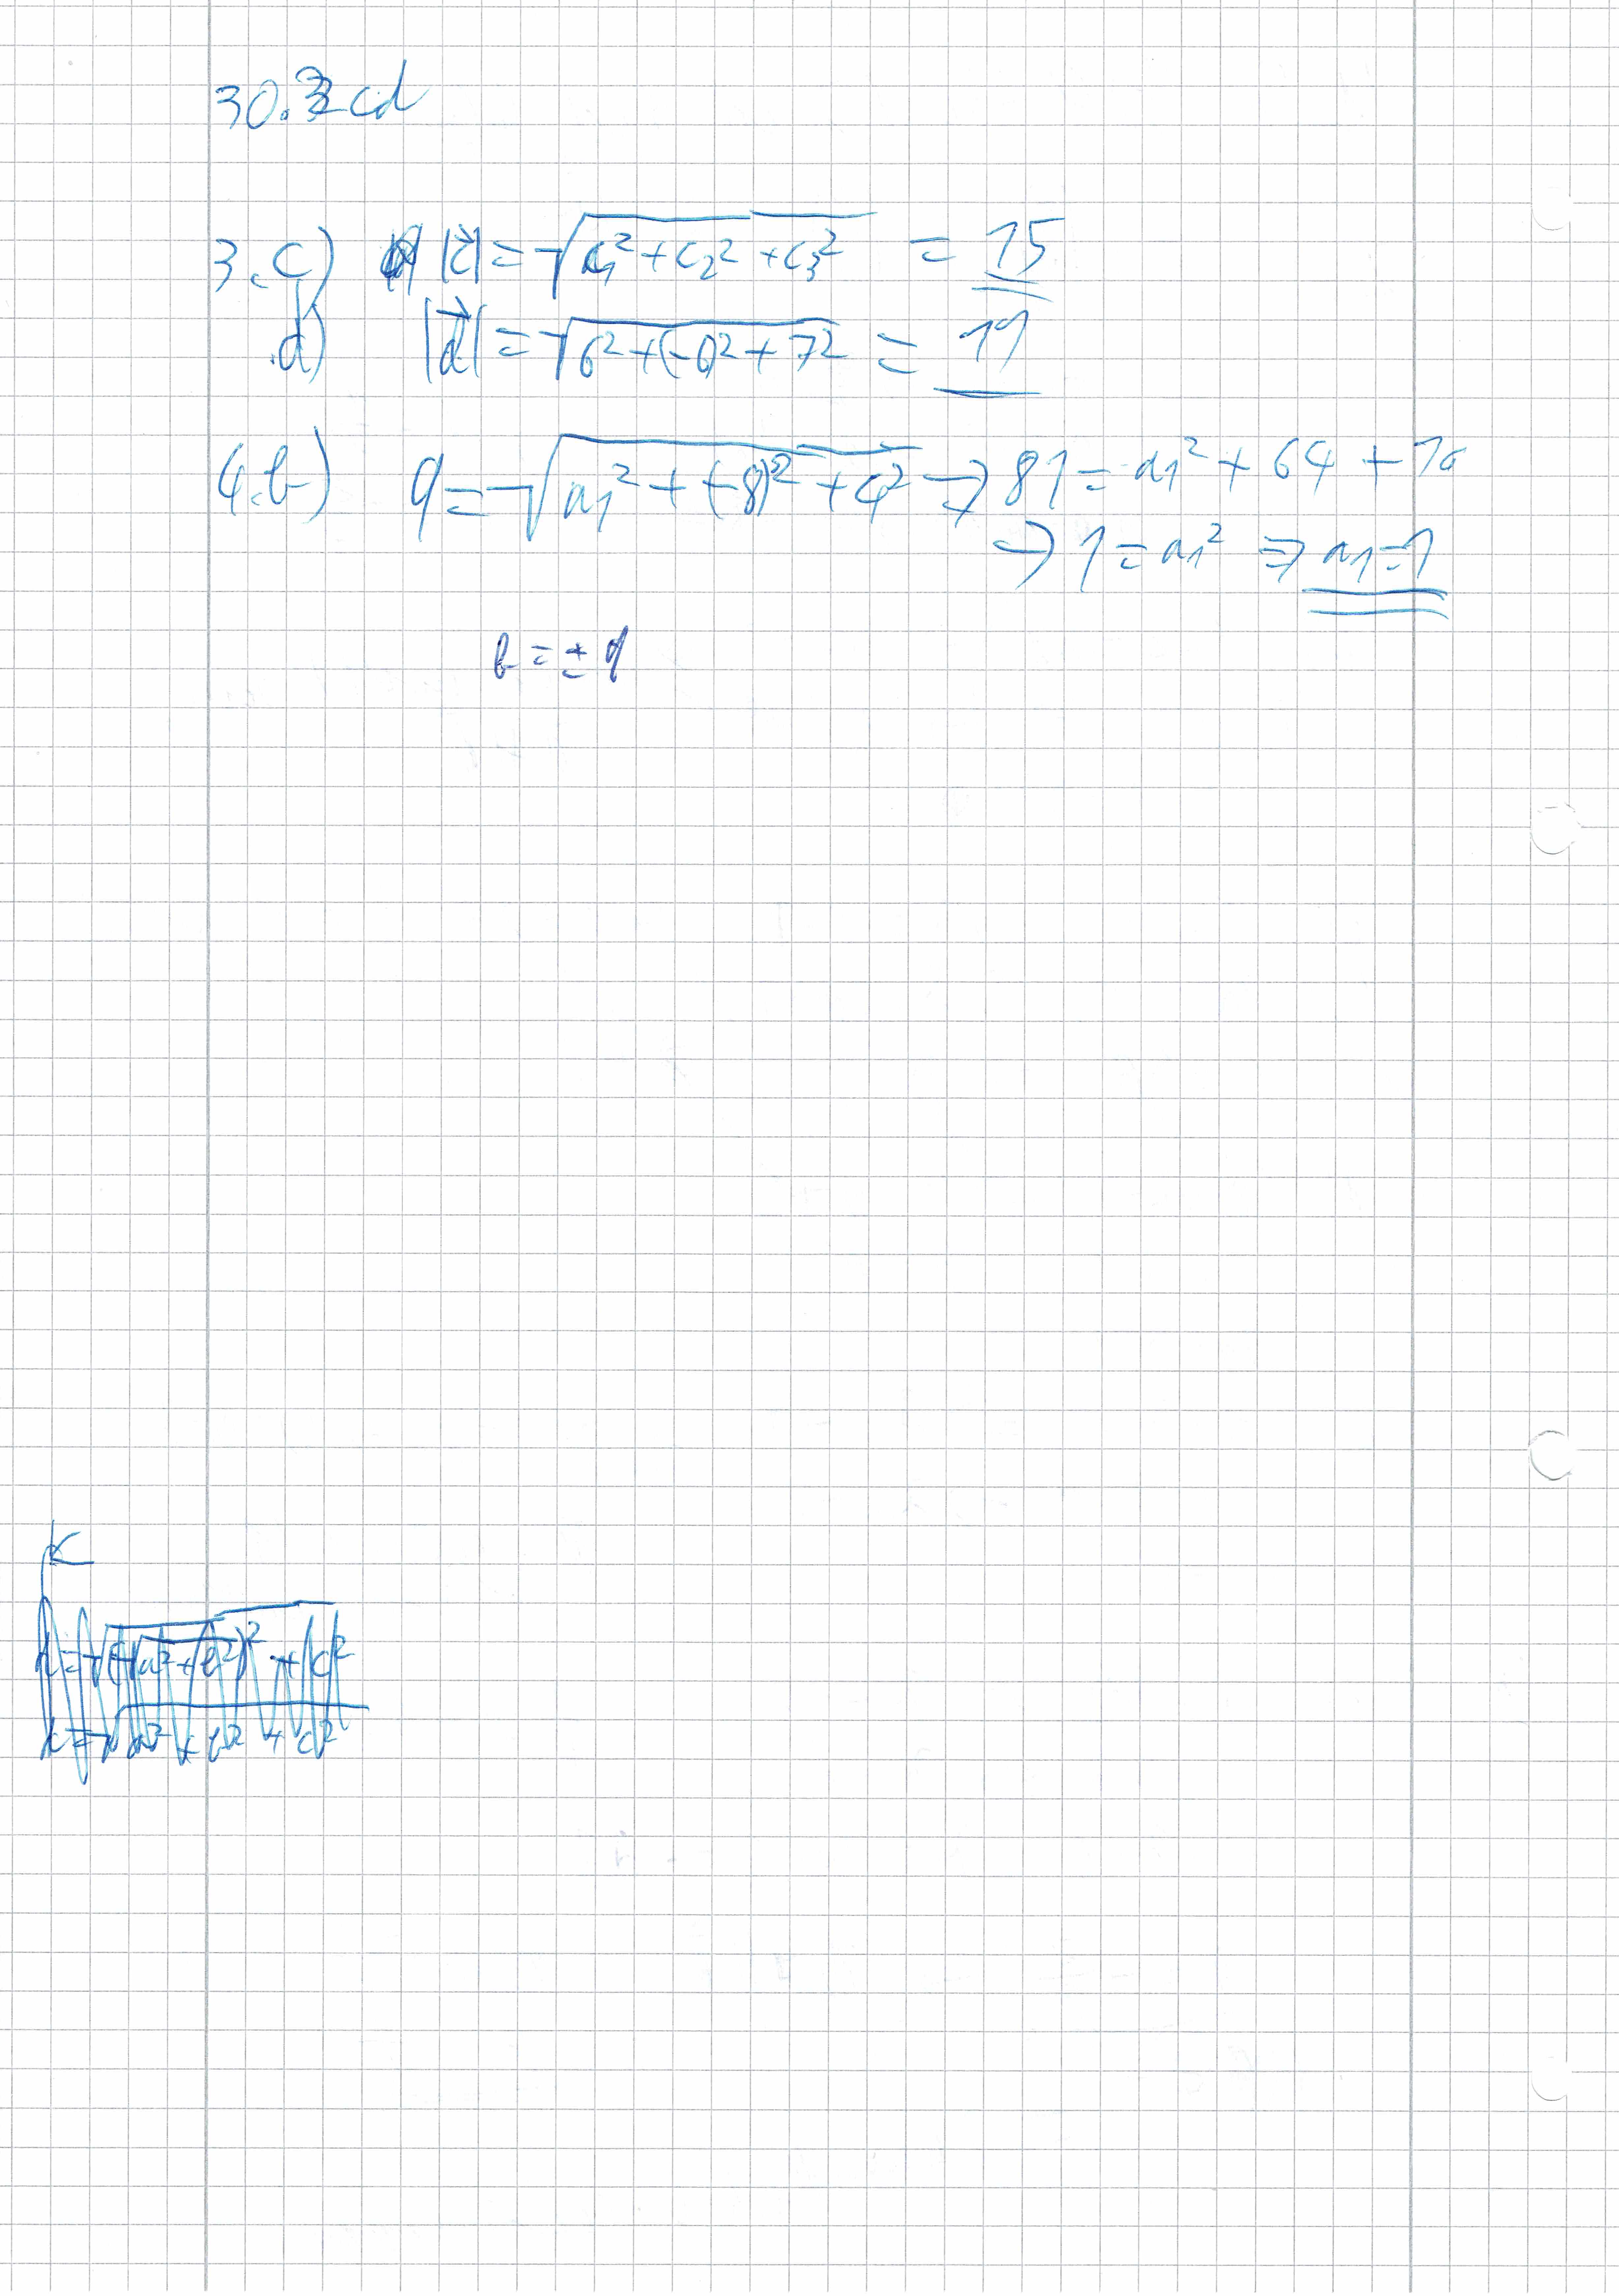 30.3 cd
3.c) |c⃗| = √(c₁² + c₂² + c₃²) = 15
d) |d⃗| = √(6² + (-6)² + 7²) = 11
4.b) 9 = √(a₁² + (-8)² + 4²) => 81 = a₁² + 64 + 16
=> 1 = a₁² => a₁ = 1
b = ± 9